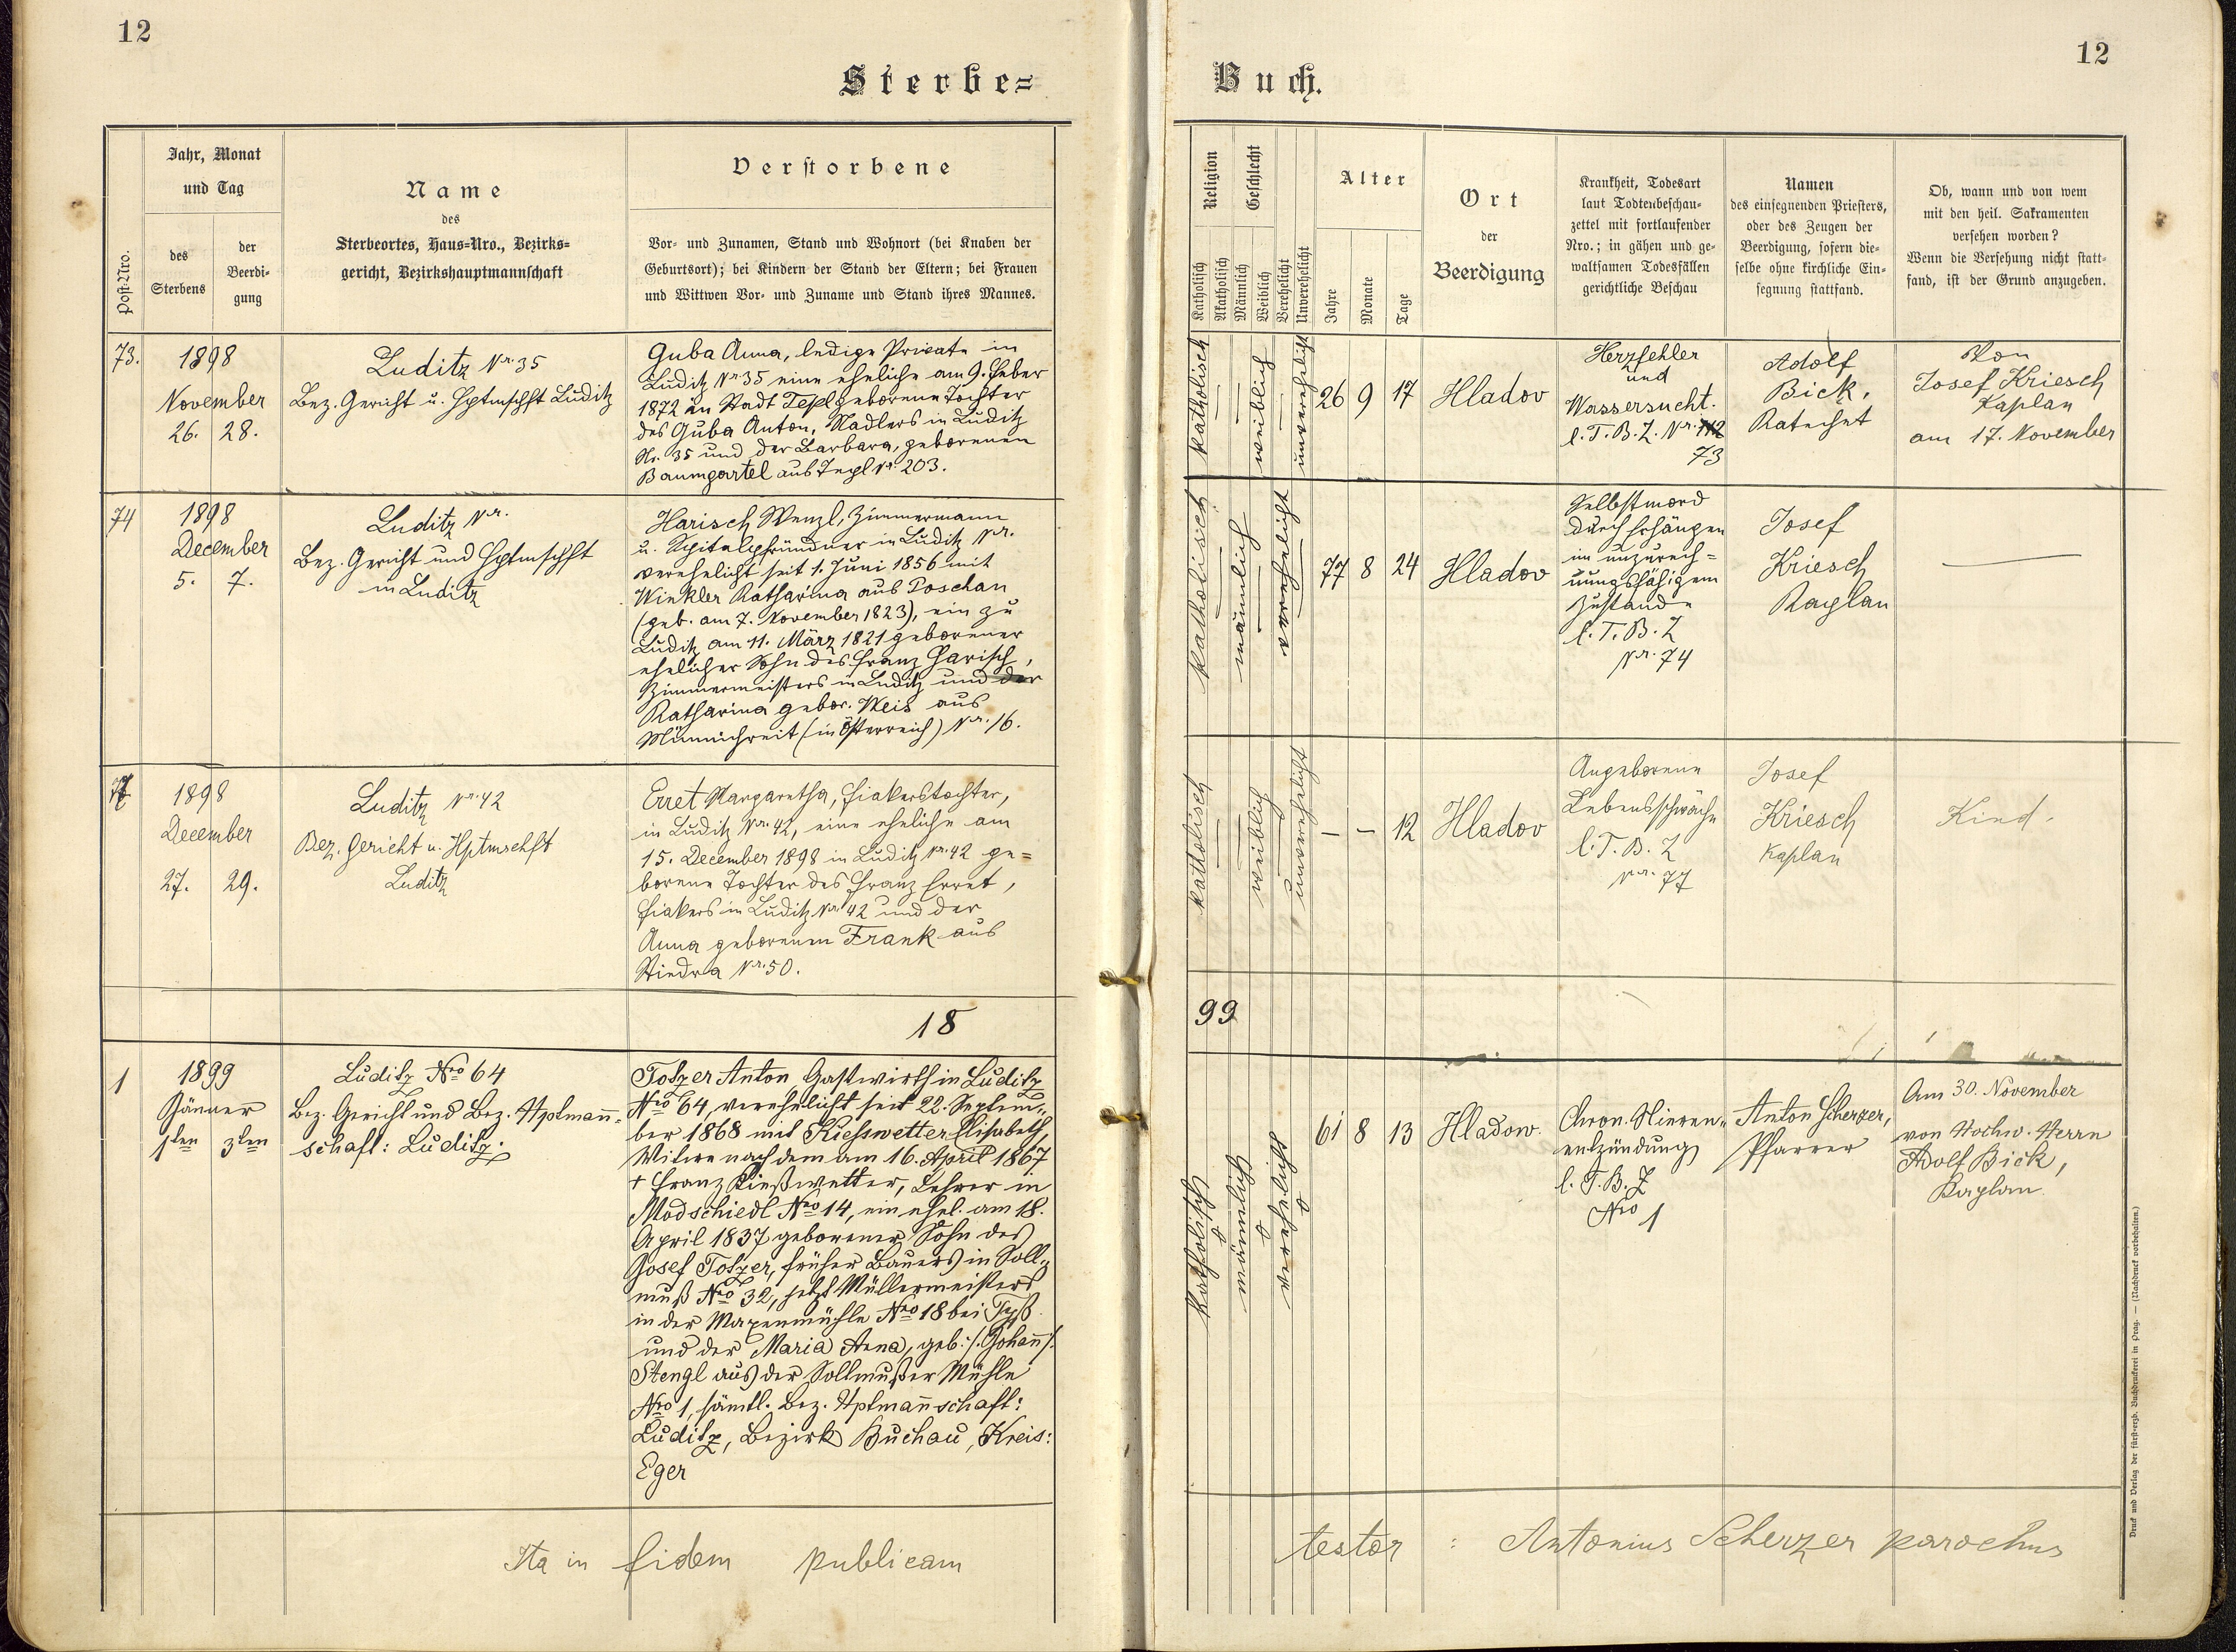 12
12
Sterbe=
Buch.
Post-Nro.
Jahr, Monat
und Tag
des
Sterbens
der
Beerdi-
gung
Name
des
Sterbeortes, Haus=Nro., Bezirks=
gericht, Bezirkshauptmannschaft
Verstorbene
Vor- und Zunamen, Stand und Wohnort (bei Knaben der
Geburtsort); bei Kindern der Stand der Eltern; bei Frauen
und Wittwen Vor- und Zuname und Stand ihres Mannes.
Religion
Katholisch
Akatholisch
Geschlecht
Männlich
Weiblich
Verehelicht
Unverehelicht
Alter
Jahre
Monate
Tage
Ort
der
Beerdigung
Krankheit, Todesart
laut Todtenbeschau-
zettel mit fortlaufender
Nro.; in gähen und ge-
waltsamen Todesfällen
gerichtliche Beschau
Namen
des einsegnenden Priesters,
oder des Zeugen der
Beerdigung, sofern die-
selbe ohne kirchliche Ein-
segnung stattfand.
Ob, wann und von wem
mit den heil. Sakramenten
versehen worden?
Wenn die Versehung nicht statt-
fand, ist der Grund anzugeben.
73.
1898
November
26. 28.
Luditz Nr. 35
Bez. Gericht u. Hptmschft Luditz
Guba Anna, ledige Private in
Luditz Nr 35 eine eheliche am 9. Feber
1872 in Stadt Tepl geborene Tochter
des Guba Anton, Nadlers in Luditz
Nr. 35 und der Barbara, geborenen
Baumgartel aus Tepl Nr. 203.
katholisch
weiblich
unverehelicht
26 9 17
Hladov
Herzfehler
und
Wassersucht.
l. T. B. Z. Nr.
73
Adolf
Bick,
Katechet
Von
Josef Kriesch
Kaplan
am 17. November
74
1898
December
5. 7.
Luditz Nr.
Bez. Gericht und Hptmschft
in Luditz
Harisch Wenzl, Zimmermann
u. Spitalpfründner in Luditz Nr.
verehelicht seit 1. Juni 1856 mit
Winkler Katharina aus Poschau
(geb. am 7. November 1823), ein zu
Luditz am 11. März 1821 geborener
ehelicher Sohn des Franz Harisch,
Zimmermeisters in Luditz und der
Katharina gebor. Weis aus
Münnichreit (in Österreich) Nr. 16.
katholisch
männlich
verehelicht
77 8 24
Hladov
Selbstmord
durch Erhängen
im unzurech=
nungsfähigem
Zustande
l. T. B. Z
Nr. 74
Josef
Kriesch
Kaplan
—
77
1898
December
27. 29.
Luditz Nr. 42
Bez. Gericht u. Hptmschft
Luditz
Erret Margaretha, Fiakerstochter,
in Luditz Nr. 42, eine eheliche am
15. December 1898 in Luditz Nr. 42 ge=
borene Tochter des Franz Erret,
Fiakers in Luditz Nr 42 und der
Anna geborenen Frank aus
Stiedra Nr. 50.
katholisch
weiblich
unverehelicht
— — 12
Hladov
Angeborene
Lebensschwäche
l. T. B. Z
Nr. 77
Josef
Kriesch
Kaplan
Kind.
18
99
1
1899
Jänner
1ten 3ten
Luditz Nro 64
Bez. Gericht und Bez. Hptmann=
schaft: Luditz.
Totzer Anton, Gastwirth in Luditz
Nro 64, verehelicht seit 22. Septem=
ber 1868 mit Kiesswetter Elisabeth,
Witwe nach dem am 16. April 1867
+ Franz Kießwetter, Lehrer in
Modschiedl Nro 14, ein ehel. am 18.
April 1837 geborener Sohn des
Josef Totzer, früher Bauers in Soll=
muß Nro 32, jetzt Müllermeisters
in der Maxenmühle Nro 18 bei
und der Maria Anna, geb: /: Johann /:
Stengl aus der Sollmußer Mühle
Nro 1, sämtl. Bez. Hptmannschaft:
Luditz, Bezirk Buchau, Kreis:
Eger
katholisch
männlich
verehelicht
61 8 13
Hladow.
Chron. Nieren=
entzündung
l. T. B. Z
Nro 1
Anton Scherzer,
Pfarrer
Am 30. November
von Hochw. Herrn
Adolf Bick,
Kaplan
Ita in fidem publicam
testor : Antonius Scherzer parochus
Druck und Verlag der fürst-erzb. Buchdruckerei in Prag. — (Nachdruck vorbehalten.)